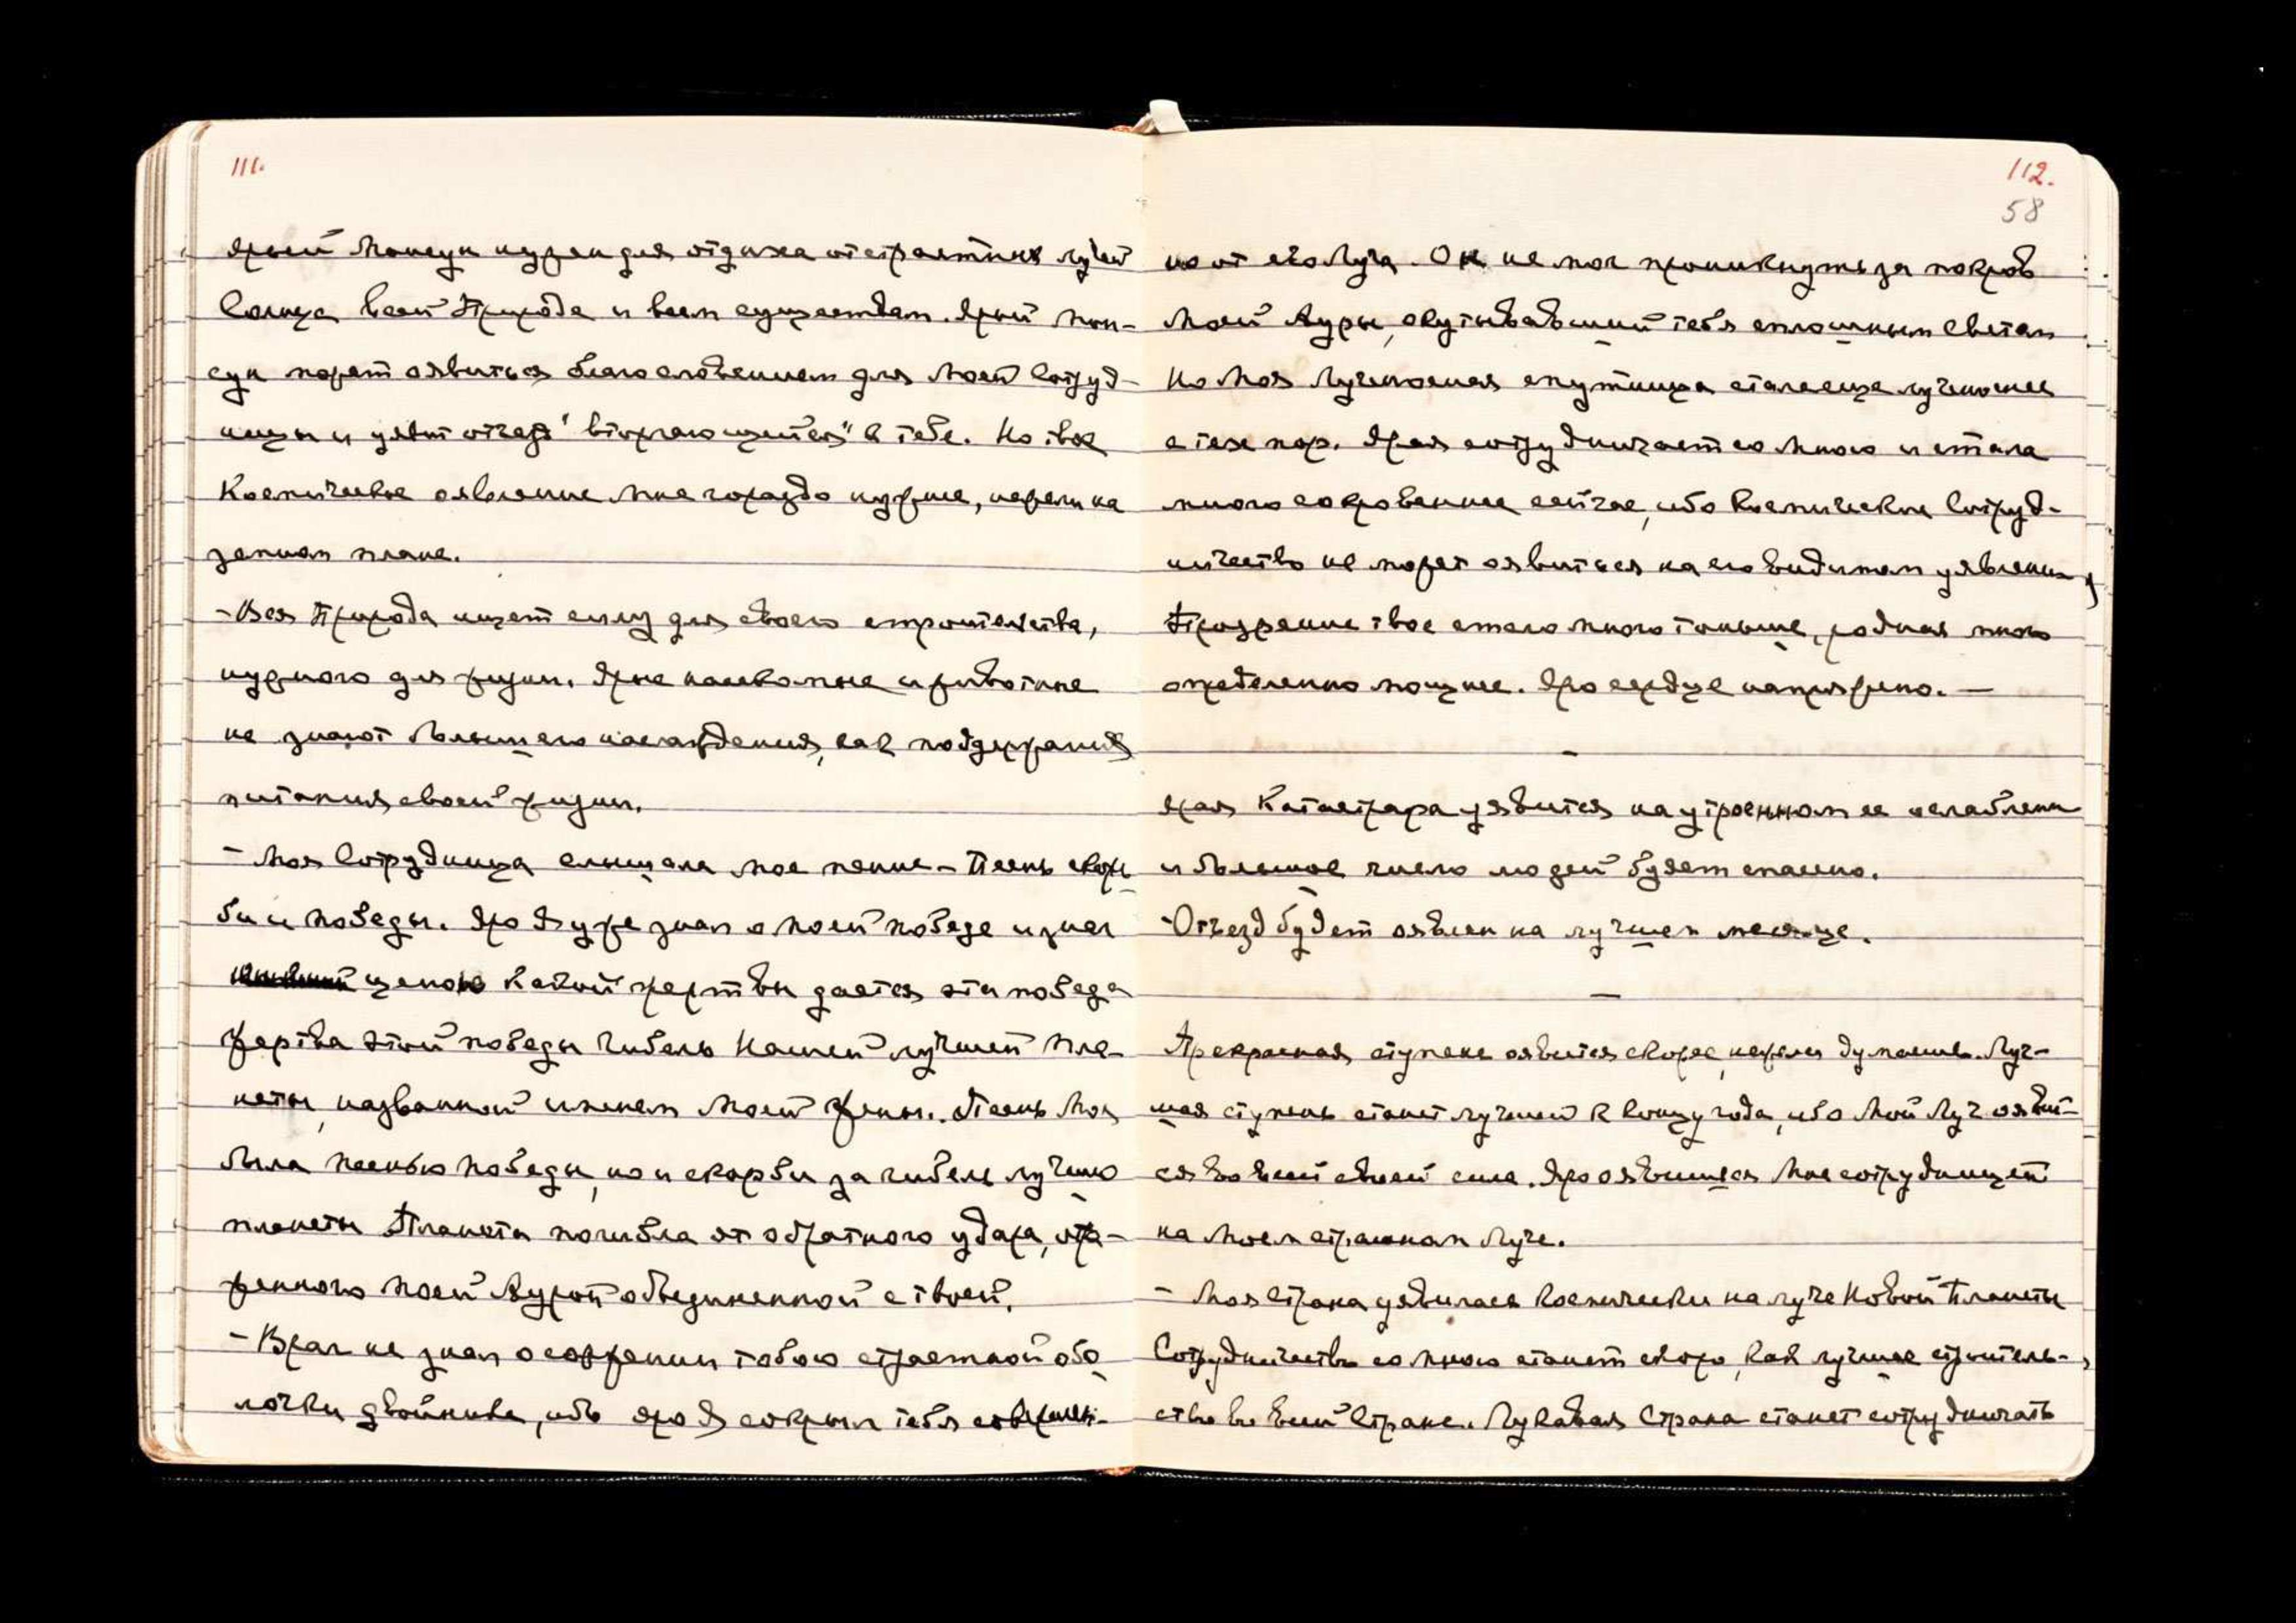 111.
Ярый Монсун нужен для отдыха от страстных лучей
Солнца всей Природе и всем существам. Ярый мон-
сун может оявиться благословением для Моей Сотруд-
ницы и уявит отчего "вторгающийся" к тебе. Но твое
Космическое оявление Мне гораздо нужнее, нежели на
земном плане.
- Вся Природа ищет силу для своего строительства,
нужного для жизни. Ярые насекомые и животные
не знают большего наслаждения, как поддержания
питания своей жизни.
- Моя Сотрудница слышала мое пение - Песнь скор-
би и победы. Яро Я уже знал о моей победе и знал
ценою какой жертвы дается эта победа
Жертва этой победы гибель Нашей лучшей Пла-
неты, названной именем Моей Жены. Песнь Моя
была песнью победы, но и скорби за гибель лучшей
планеты. Планета погибла от обратного удара, отра-
женного Моей Аурой объединенной с твоей.
- Враг не знал о сожжении тобою страстной обо
лочки двойника, ибо яро Я сокрыл тебя совершен-
112.
58
но от его Луча. Он не мог проникнуть за покров
Моей Ауры, окутывавший тебя сплошным светом
Но Моя Лученосная спутница стала еще лученоснее
с тех пор. Ярая сотрудничает со Мною и стала
много сокровеннее сейчас, ибо Космическое Сотруд-
ничество не может оявиться на его видимом уявлении,
Прозрение твое стало много тоньше, родная много
определенно мощнее. Яро сердце напряжено. —
—
Ярая Катастрофа уявится на утроенном ее ослаблении
и большое число людей будет спасено.
- Отъезд будет оявлен на лучшем месяце.
—
Прекрасная ступень оявится скорее, нежели думаешь. Луч-
шая ступень станет лучшей к концу года, ибо Мой Луч оявит-
ся во всей своей силе. Яро оявишься Мне сотрудницей
на Моем страшном Луче.
- Моя Страна уявилась космически на луче Новой Планеты
Сотрудничество со Мною станет скоро, как лучшее строитель-
ство во всей Стране. Лукавая Страна станет сотрудничать